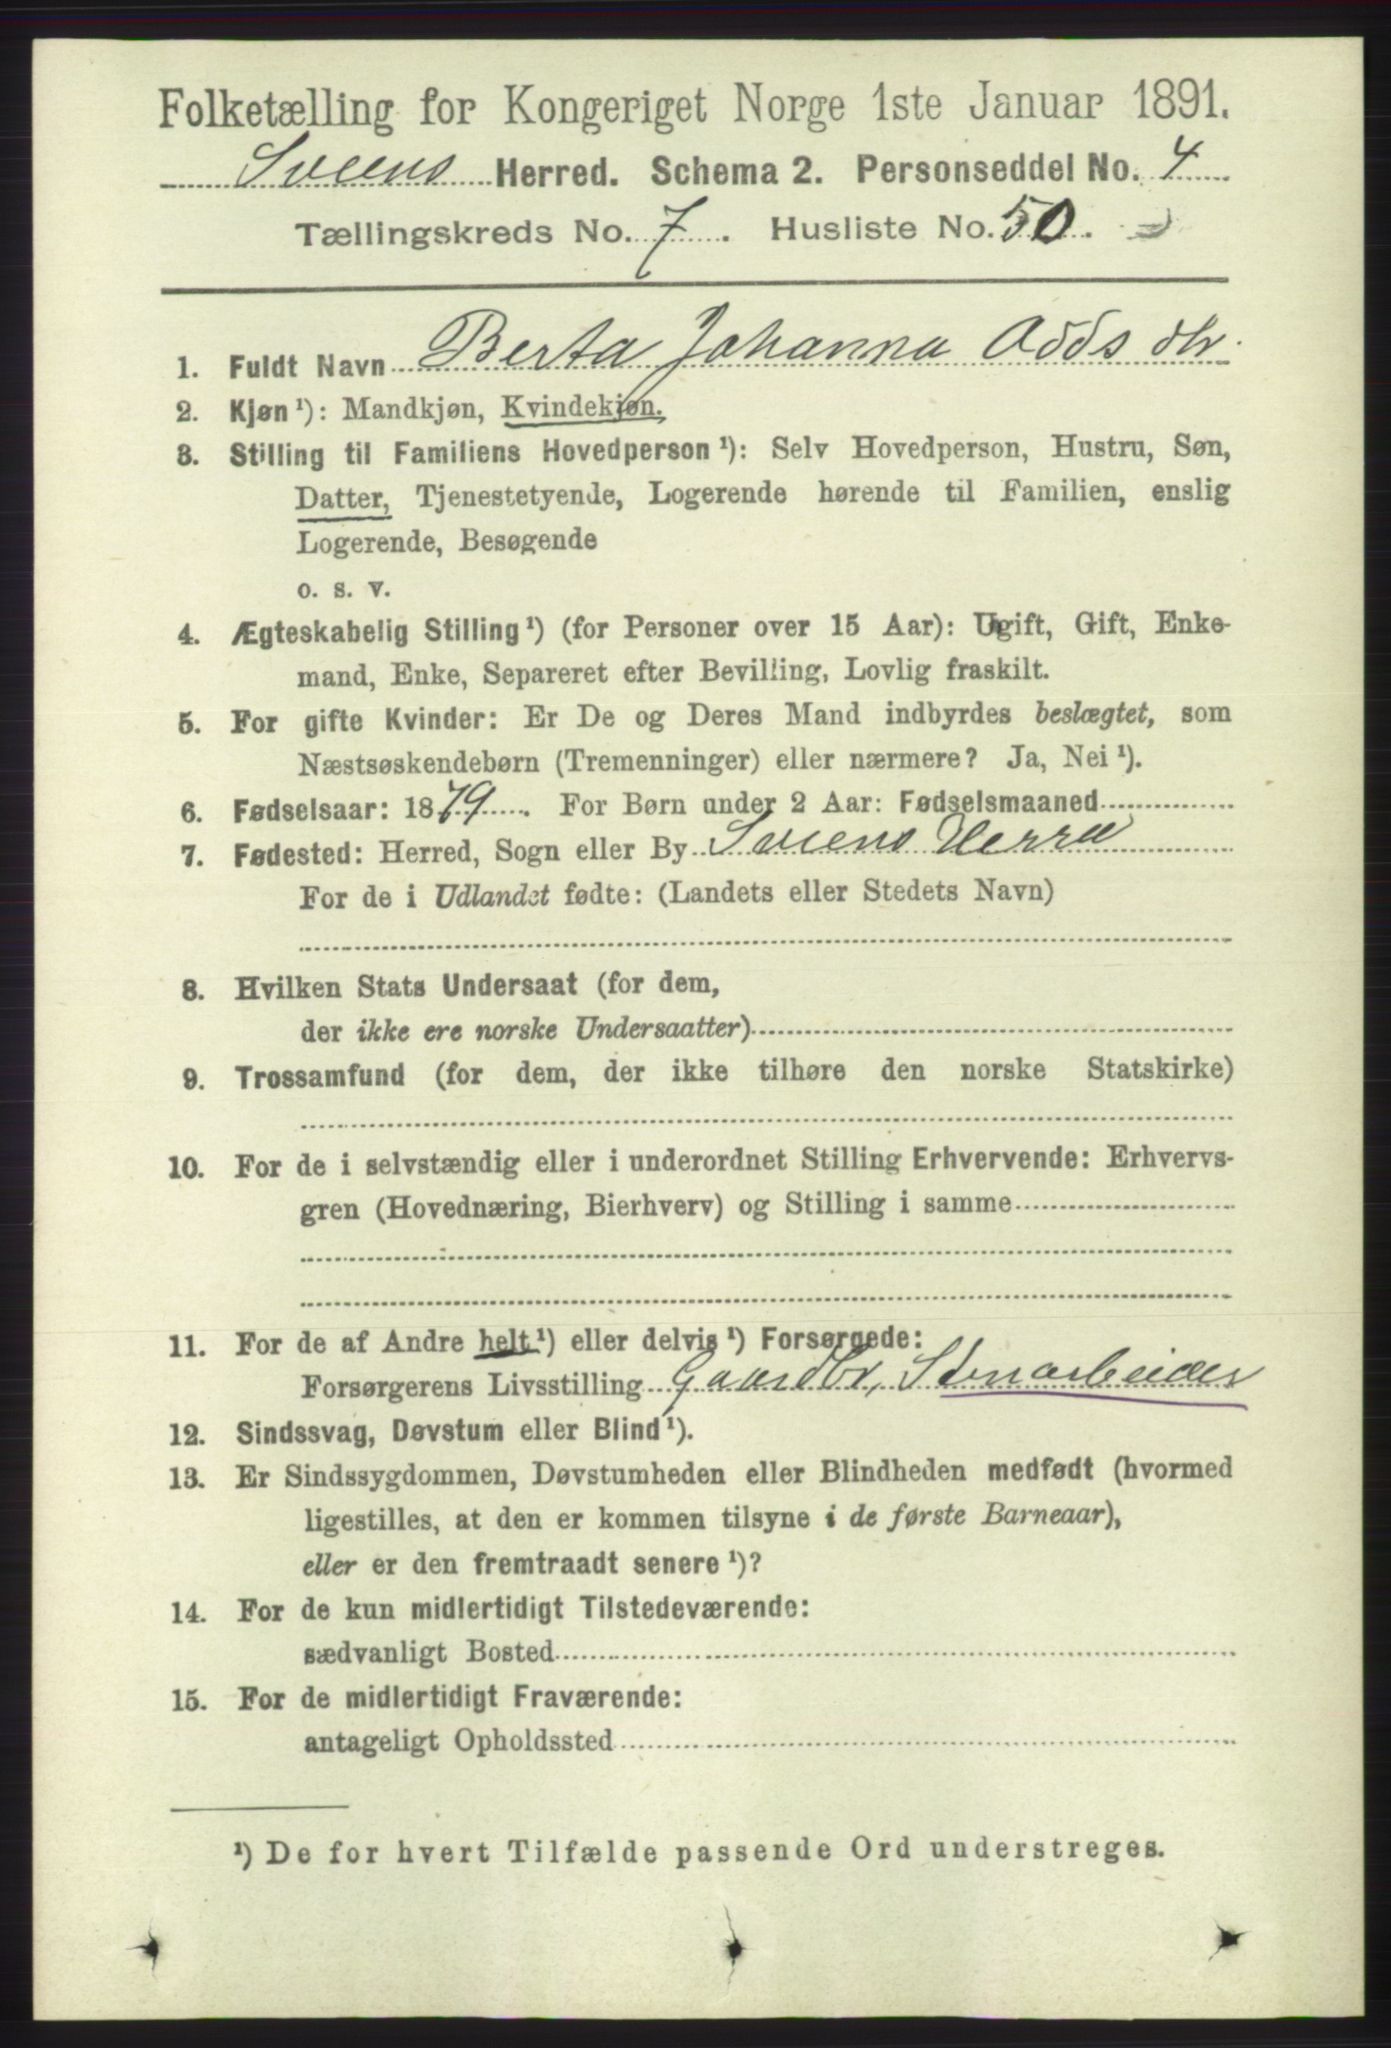 Folketælling for Kongeriget Norge 1ste Januar 1891.
Sveens Herred. Schema 2. Personseddel No. 4
Tællingskreds No. 7. Husliste No. 50.
1. Fuldt Navn Berta Johanna Odds dtr.
2. Kjøn ¹): Mandkjøn, Kvindekjøn.
3. Stilling til Familiens Hovedperson ¹): Selv Hovedperson, Hustru, Søn,
Datter, Tjenestetyende, Logerende hørende til Familien, enslig
Logerende, Besøgende
o. s. v.
4. Ægteskabelig Stilling ¹) (for Personer over 15 Aar): Ugift, Gift, Enke-
mand, Enke, Separeret efter Bevilling, Lovlig fraskilt.
5. For gifte Kvinder: Er De og Deres Mand indbyrdes beslægtet, som
Næstsøskendebørn (Tremenninger) eller nærmere? Ja, Nei ¹).
6. Fødselsaar: 1879. For Børn under 2 Aar: Fødselsmaaned
7. Fødested: Herred, Sogn eller By Sveens Herra
For de i Udlandet fødte: (Landets eller Stedets Navn)
8. Hvilken Stats Undersaat (for dem,
der ikke ere norske Undersaatter)
9. Trossamfund (for dem, der ikke tilhøre den norske Statskirke)
10. For de i selvstændig eller i underordnet Stilling Erhvervende: Erhvervs-
gren (Hovednæring, Bierhverv) og Stilling i samme
11. For de af Andre helt ¹) eller delvis ¹) Forsørgede:
Forsørgerens Livsstilling Gaardbr, Stenarbeider
12. Sindssvag, Døvstum eller Blind ¹).
13. Er Sindssygdommen, Døvstumheden eller Blindheden medfødt (hvormed
ligestilles, at den er kommen tilsyne i de første Barneaar),
eller er den fremtraadt senere ¹)?
14. For de kun midlertidigt Tilstedeværende:
sædvanligt Bosted
15. For de midlertidigt Fraværende:
antageligt Opholdssted
¹) De for hvert Tilfælde passende Ord understreges.